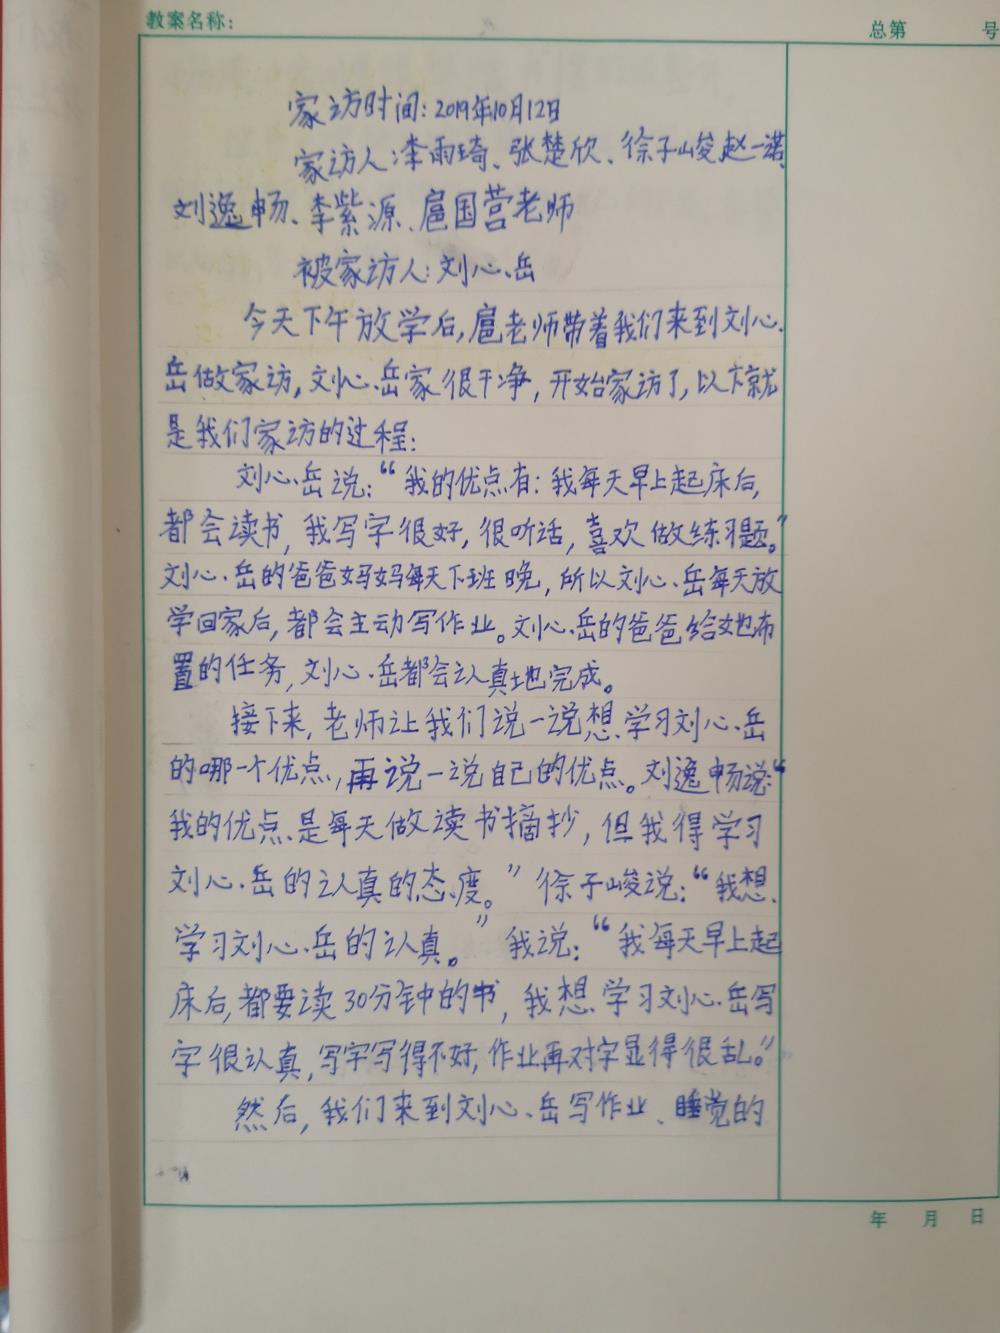 教案名称：
总第 号
家访时间：2019年10月12日
家访人：李雨琦、张楚欣、徐子峻赵一诺、
刘逸畅、李紫源、扈国营老师
被家访人：刘心岳
今天下午放学后，扈老师带着我们来到刘心
岳做家访，刘心岳家很干净，开始家访了，以下就
是我们家访的过程：
刘心岳说：“我的优点有：我每天早上起床后，
都会读书，我写字很好，很听话，喜欢做练习题。”
刘心岳的爸爸妈妈每天下班晚，所以刘心岳每天放
学回家后，都会主动写作业。刘心岳的爸爸给她布
置的任务，刘心岳都会认真地完成。
接下来，老师让我们说一说想学习刘心岳
的哪一个优点，再说一说自己的优点。刘逸畅说：“
我的优点是每天做读书摘抄，但我得学习
刘心岳的认真的态度。”徐子峻说：“我想
学习刘心岳的认真。”我说：“我每天早上起
床后，都要读30分钟的书，我想学习刘心岳写
字很认真，写字写得不好，作业再对字显得很乱。”
然后，我们来到刘心岳写作业、睡觉的
年 月 日